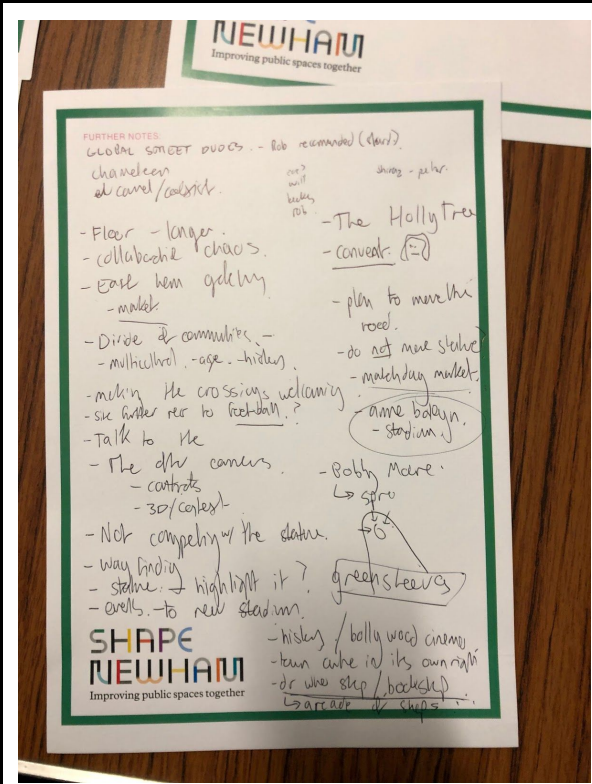 NEWHAM
Improving public spaces together
FURTHER NOTES
GLOBAL STREET - Rob recommended
chameleon
will
rob
- Floor - longer.
- chaos.
- East ham
- market
- Divide of communities. -
- age. - history
- making the crossings welcoming
- site further to football?
- Talk to the
- The other corners.
- contrasts
- 3D/
- Not competing w/ the statue.
- way finding
- statue. highlight it?
- events. - to new stadium.
- The Holly Tree
- convent.
- plan to move the
road.
- do not move statue
- matchday market.
- anne boleyn.
- stadium.
- Bobby Moore.
greensleeves
- history / bollywood cinema
- town in its own right
- dr who shop / bookshop
↳ arcade of shops
SHAPE
NEWHAM
Improving public spaces together